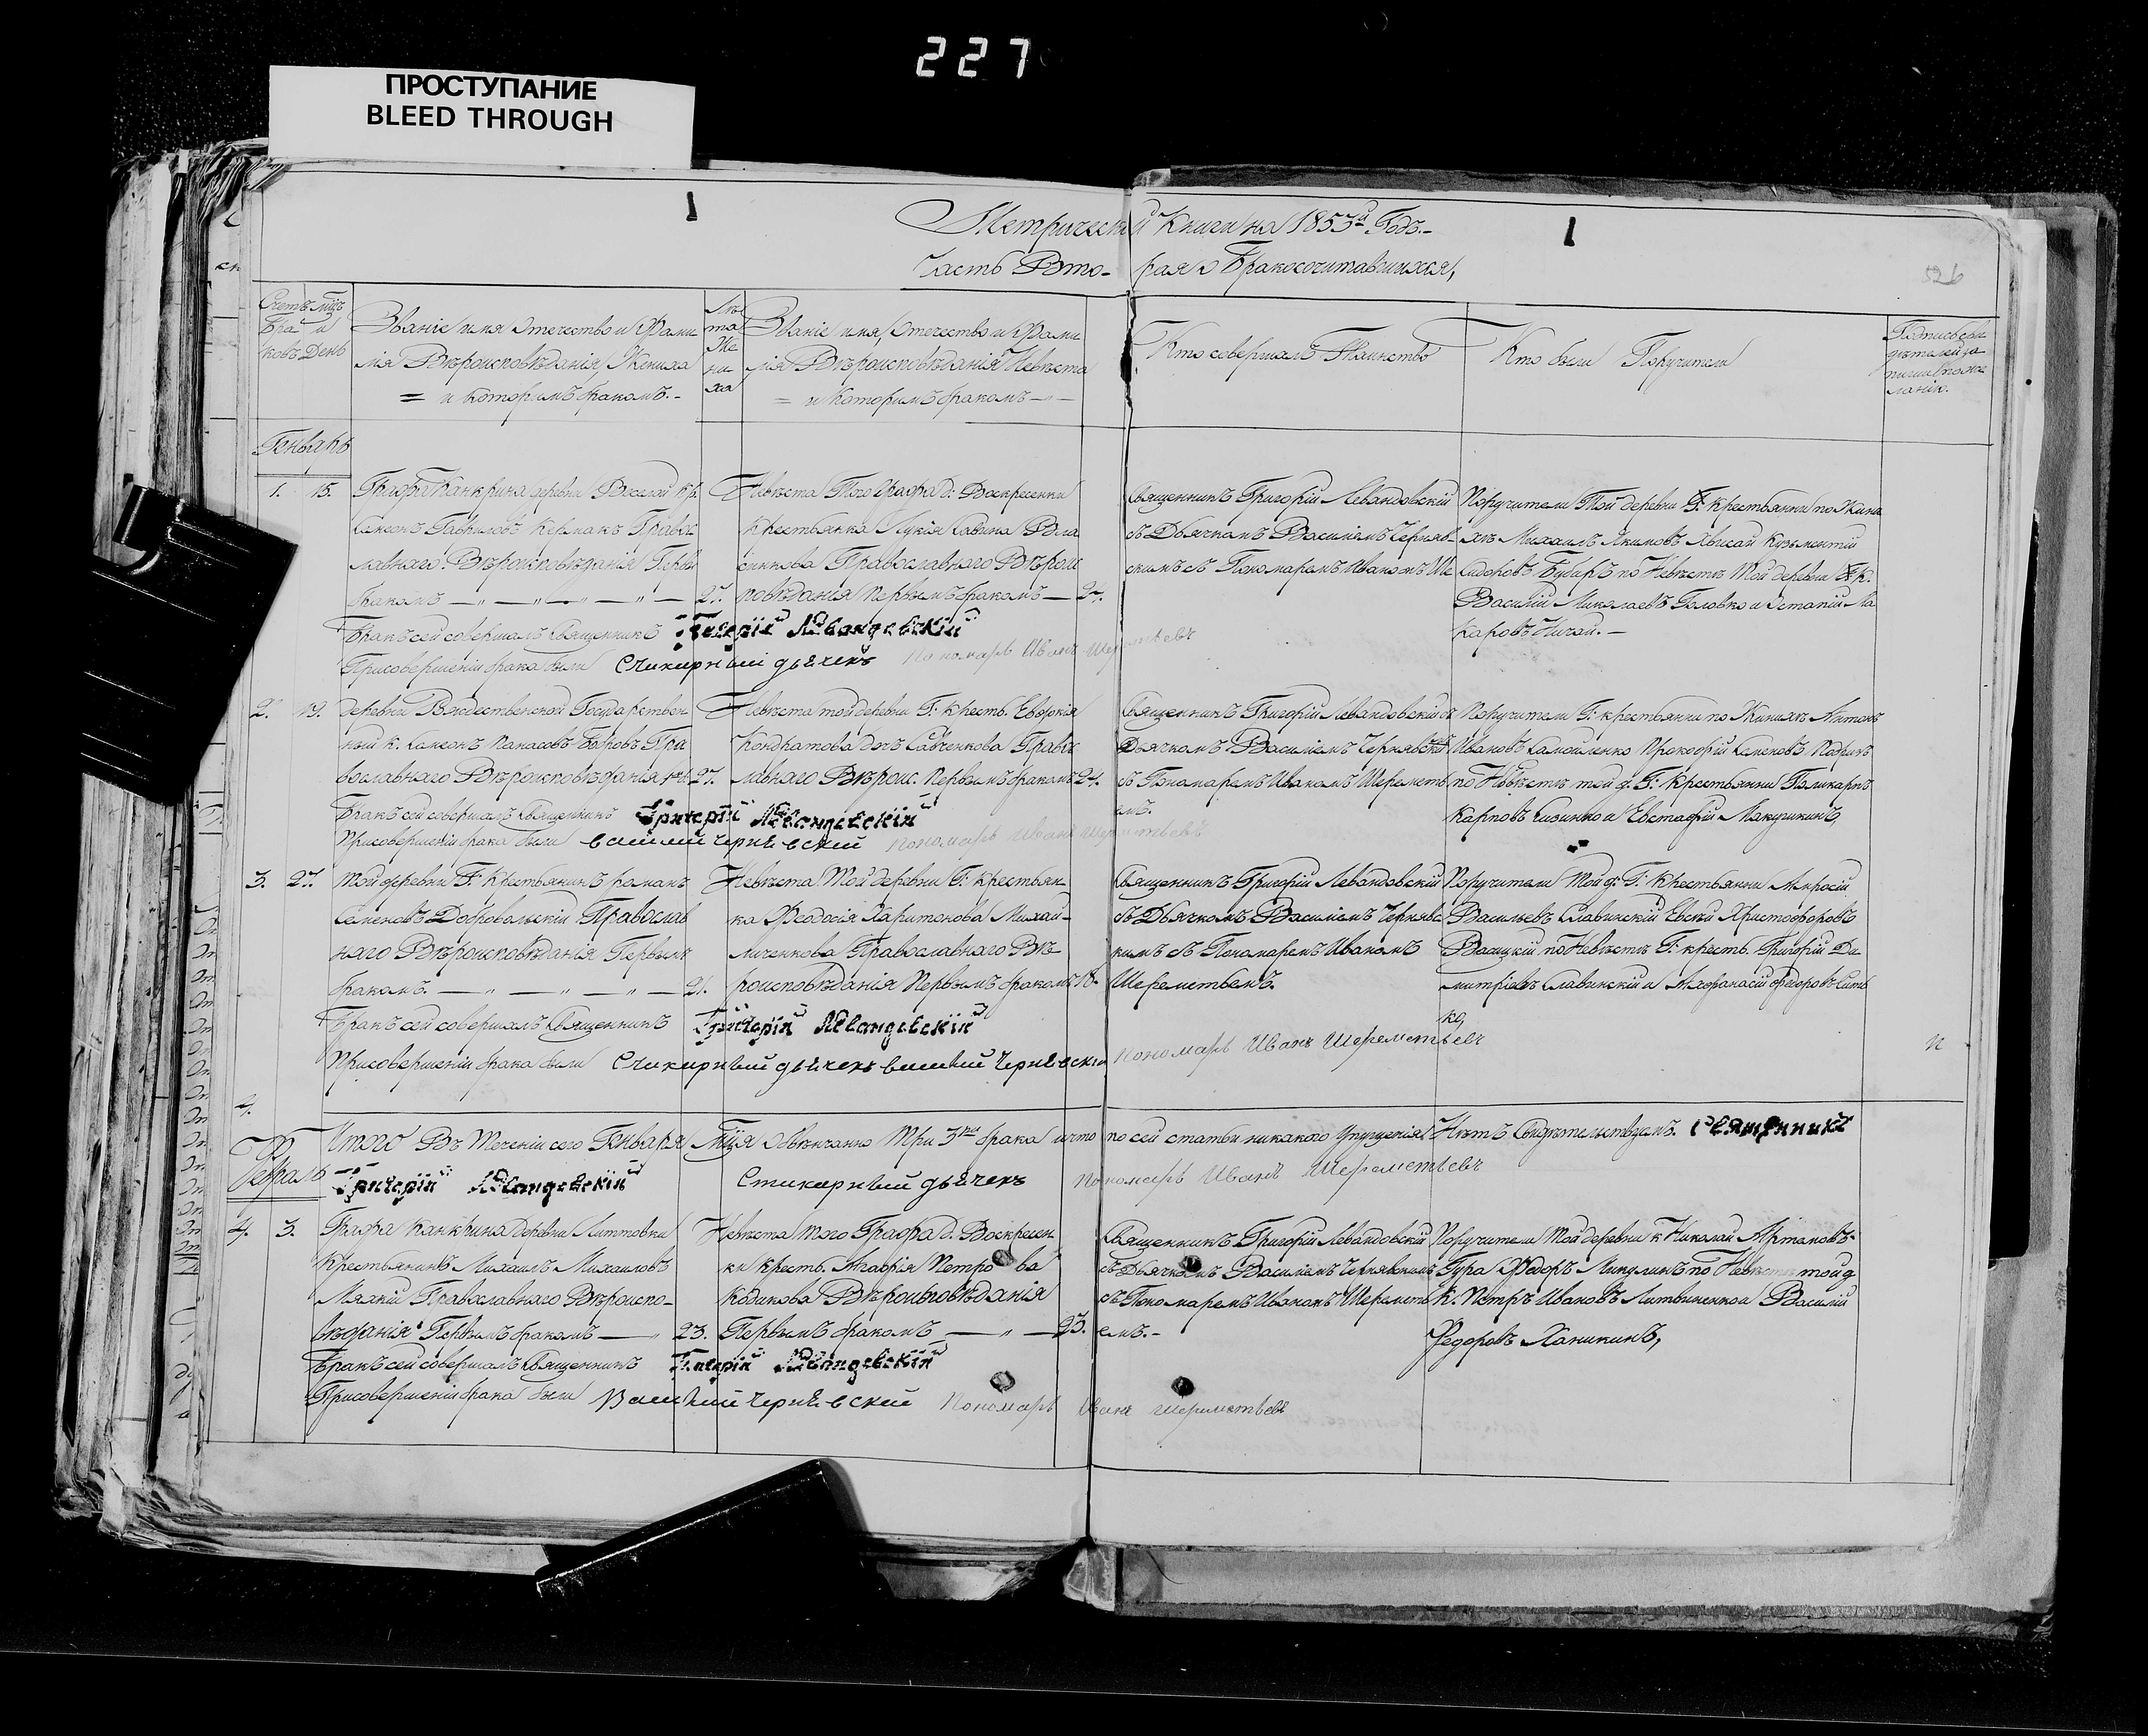 227
ПРОСТУПАНИЕ
BLEED THROUGH
Метрической Книги на 1853й Годъ.-
Часть Вто- рая о Бракосочитавшихся,
526
Счетъ Бра ковъ
мцъ и День
Званіе имя отечество и Фами
лія Вѣроисповѣданія Жениха
= и которимъ бракомъ.-
Лѣ
та
Же
ни
ха
Званіе имя, отечество и Фами
лія Вѣроисповѣданія Невѣста
= и которимъ бракомъ — -
Кто совершалъ Таинство
Кто были Поручители
Генварь
1. 15. Графа Канкрина деревни Веселой кр.
Самсонъ Гавриловъ Керманъ Правос
лавнаго Вѣроисповѣданія Первы
бракомъ — „ — „ — „ — 27.
Невѣста Того Графа д: Воскресенки
Крестьянка Лукія Савина
Православнаго Вѣроис
повѣданія Первымъ бракомъ — 24.
Священникъ Григорій Левандовскій
съ Дьячкомъ Василіемъ Черняв-
скимъ съ Пономаремъ Иваномъ Ше
Поручители Той деревни Г: крестьянни по Жини
хѣ Михаилъ Якимовъ Кузьментій
Сидоровъ по Невѣстѣ Той деревни К.
Василій Миколаевъ Головко и Остапій Ма
каровъ Ничай. —
Бракъ сей совершалъ Священникъ Григорій Левандовскій
Присовершеніи брака были Стихарный дьячекъ Пономарь Иванъ Шереметьевъ
2. 19. деревни Рождественской Государствен
ный к. Самсонъ Панасовъ Бобровъ Пра
вославнаго Вѣроисповѣданія 27.
Невѣста той деревни Г: кресть. Евфкія
Кондратова доч Савченкова Правос
лавнаго Вѣроис. Первымъ бракомъ 24.
Священникъ Григорій Левандовскій съ
Дьячкомъ Василіемъ Чернявским
съ Пономаремъ Иваномъ Шереметь
емъ.
Поручители Г: крестьянни по Жинихѣ Антонъ
Ивановъ Самойленко Прокофій Семеновъ
по Невѣстѣ той д. Г: крестьянни Поликарпъ
Карповъ и Евстафій Макушкинъ,
Бракъ сей совершалъ Священникъ Григорій Левандовскій
Присовершеніи брака были василий Чернѣвский Пономарь Иванъ Шереметьевъ
3. 27. той деревни Г: Крестьянинъ романъ
Семеновъ Добровальскій Православ
наго Вѣроисповѣданія Первымъ
бракомъ. — „ — „ — „ — 21.
Невѣста Той деревни Г: крестьян-
ка Феодосія Харитонова Михай-
личенкова Православнаго Вѣ-
роисповѣданія Первымъ бракомъ 18.
Священникъ Григорій Левандовскій
съ Дьячкомъ Василіемъ Чернявс
кимъ съ Пономаремъ Иваномъ
Шереметьемъ.
Поручители той д: Г: Крестьянни Амросій
Васильевъ Славинскій Евсей Христофоровъ
по Невѣстѣ Г: кресть. Григорій Ди
митріевъ Славинскій и Афанасій Федоровъ Сить
ко,
Бракъ сей совершалъ Священникъ Григорій Левандовскій
Присовершеніи брака были Стихарный дьячекъ василий Чернѣвский Пономарь Иванъ Шереметьевъ
Итого Въ теченіи сего Генваря Мця обвѣнчанно три 3ри брака и что по сей статьи никакого упущенія Нѣтъ Свидѣтельствуемъ. Священникъ
Григорій Левандовскій Стихарный дьячекъ Пономарь Иванъ Шереметьевъ
Февраль
4. 3. Графа Канкрина деревни Литтовки
Крестьянинъ Михаилъ Михаиловъ
Мягкій Православнаго Вѣроиспо-
вѣданія Первымъ бракомъ — „ 23.
Невѣста того Графа д. Воскресен
ки кресть. Агафія Петро ва
Кодакова Вѣроисповѣданія
Первымъ бракомъ — „ — 23.
Священникъ Григорій Левандовскій
съ Дьячкомъ Василіемъ Чернявскимъ
съ Пономаремъ Иваномъ Шереметь
емъ.-
Поручители той деревни к Николай Артаковъ-
Гура Федоръ Микулинъ по Невѣстѣ той д
К. Петръ Ивановъ Литвиненко и Василій
Федоровъ Ханикинъ,
Бракъ сей совершалъ Священникъ Григорій Левандовскій
Присовершеніи брака были Василий Чернѣвский Пономарь Иванъ Шереметьевъ